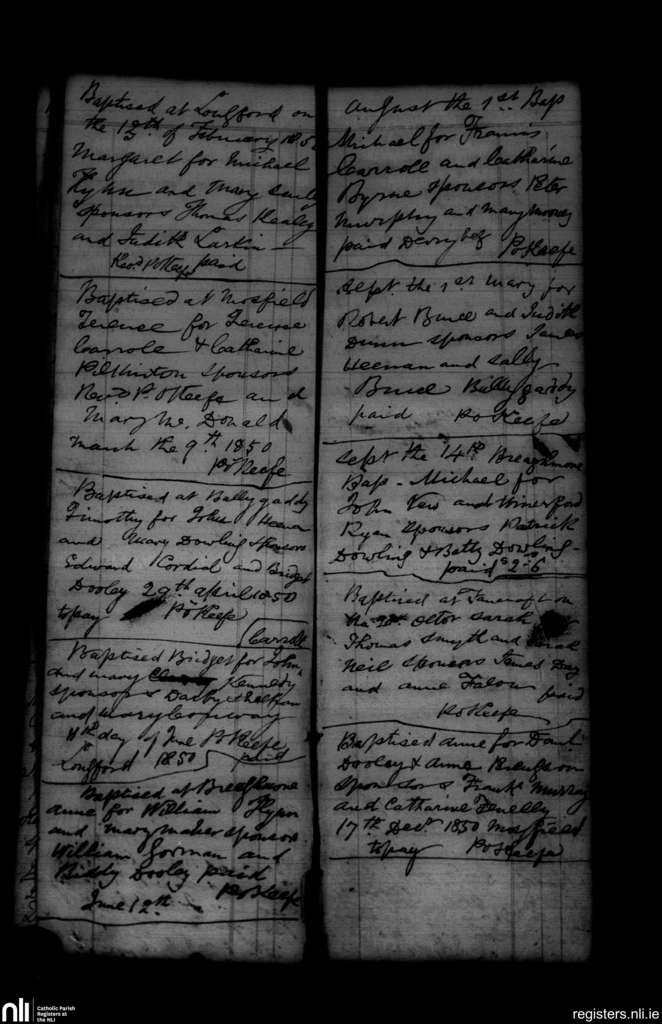 Baptised at Longford on
the 13th of February 1850
Margaret for Michael
Flynn and Mary
Sponsors Thomas Healy
and Judith Larkin
Revd POKeefe paid
Baptised at Mosfield
Terence for Terence
Carrole & Catharine
Pilkinton Sponsors
Revd P. OKeefe and
Mary Mc. Donald
March the 9th 1850
POKeefe
Baptised at Ballygaddy
Timothy for John Heenan
and Mary Dowling Sponsors
Edward Cordial and Bridget
Dooley 29th April 1850
topay POKeefe
Carroll
Baptised Bridget for John
and Mary Kennedy
Sponsors Darby
and Mary Conway
11th day of June POKeefe
Longford 1850 paid
Baptised at Breaghmore
Anne for William Flynn
and Mary Maher Sponsors
William Gorman and
Biddy Dooley paid
POKeefe
June 12th
August the 1st Bap
Michael for Francis
Carroll and Catharine
Byrne Sponsors Peter
Murphy and Mary Mooney
paid POKeefe
Sept. the 1st Mary for
Robert Bruce and Judith
Dunn Sponsors James
Heenan and Sally
Bruce Ballygaddy
paid POKeefe
Sept the 14th Breaghmore
Bap - Michael for
John and Winerford
Ryan Sponsors Patrick
Dowling & Betty Dowling
paid 2=6
Baptised at on
the Octor Sarah
Thomas Smyth and Sarah
Neil Sponsors James Day
and Anne Falon paid
POKeefe
Baptised Anne for Danl
Dooley & Anne
Sponsors Frank Murray
and Catharine Fenelly
17th Decr 1850 Mosfield
topay POKeefe
nli
Catholic Parish
Registers at
the NLI
registers.nli.ie